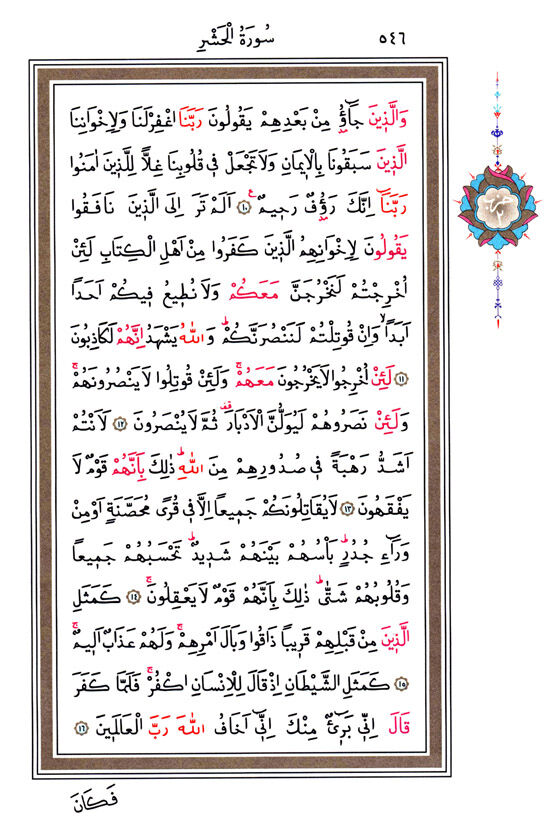 ٥٤٦ سُورَةُ الْحَشْرِ
وَالَّذ۪ينَ جَٓاؤُ۫ مِنْ بَعْدِهِمْ يَقُولُونَ رَبَّنَا اغْفِرْلَنَا وَلِاِخْوَانِنَا
الَّذ۪ينَ سَبَقُونَا بِالْا۪يمَانِ وَلَا تَجْعَلْ ف۪ي قُلُوبِنَا غِلًّا لِلَّذ۪ينَ اٰمَنُوا
رَبَّنَٓا اِنَّكَ رَؤُ۫فٌ رَح۪يمٌ ۟ ﴿١٠﴾ اَلَمْ تَرَ اِلَى الَّذ۪ينَ نَافَقُوا
يَقُولُونَ لِاِخْوَانِهِمُ الَّذ۪ينَ كَفَرُوا مِنْ اَهْلِ الْكِتَابِ لَئِنْ
اُخْرِجْتُمْ لَنَخْرُجَنَّ مَعَكُمْ وَلَا نُط۪يعُ ف۪يكُمْ اَحَدًا
اَبَدًاۙ وَاِنْ قُوتِلْتُمْ لَنَنْصُرَنَّكُمْۜ وَاللّٰهُ يَشْهَدُ اِنَّهُمْ لَكَاذِبُونَ
﴿١١﴾ لَئِنْ اُخْرِجُوا لَا يَخْرُجُونَ مَعَهُمْۚ وَلَئِنْ قُوتِلُوا لَا يَنْصُرُونَهُمْۚ
وَلَئِنْ نَصَرُوهُمْ لَيُوَلُّنَّ الْاَدْبَارَ۠ ثُمَّ لَا يُنْصَرُونَ ﴿١٢﴾ لَاَنْتُمْ
اَشَدُّ رَهْبَةً ف۪ي صُدُورِهِمْ مِنَ اللّٰهِۜ ذٰلِكَ بِاَنَّهُمْ قَوْمٌ لَا
يَفْقَهُونَ ﴿١٣﴾ لَا يُقَاتِلُونَكُمْ جَم۪يعًا اِلَّا ف۪ي قُرًى مُحَصَّنَةٍ اَوْ مِنْ
وَرَٓاءِ جُدُرٍۜ بَاْسُهُمْ بَيْنَهُمْ شَد۪يدٌۜ تَحْسَبُهُمْ جَم۪يعًا
وَقُلُوبُهُمْ شَتّٰىۜ ذٰلِكَ بِاَنَّهُمْ قَوْمٌ لَا يَعْقِلُونَۚ ﴿١٤﴾ كَمَثَلِ
الَّذ۪ينَ مِنْ قَبْلِهِمْ قَر۪يبًا ذَاقُوا وَبَالَ اَمْرِهِمْۚ وَلَهُمْ عَذَابٌ اَل۪يمٌۚ
﴿١٥﴾ كَمَثَلِ الشَّيْطَانِ اِذْ قَالَ لِلْاِنْسَانِ اكْفُرْۚ فَلَمَّا كَفَرَ
قَالَ اِنّ۪ي بَر۪ٓيءٌ مِنْكَ اِنّ۪ٓي اَخَافُ اللّٰهَ رَبَّ الْعَالَم۪ينَ ﴿١٦﴾
فَكَانَ